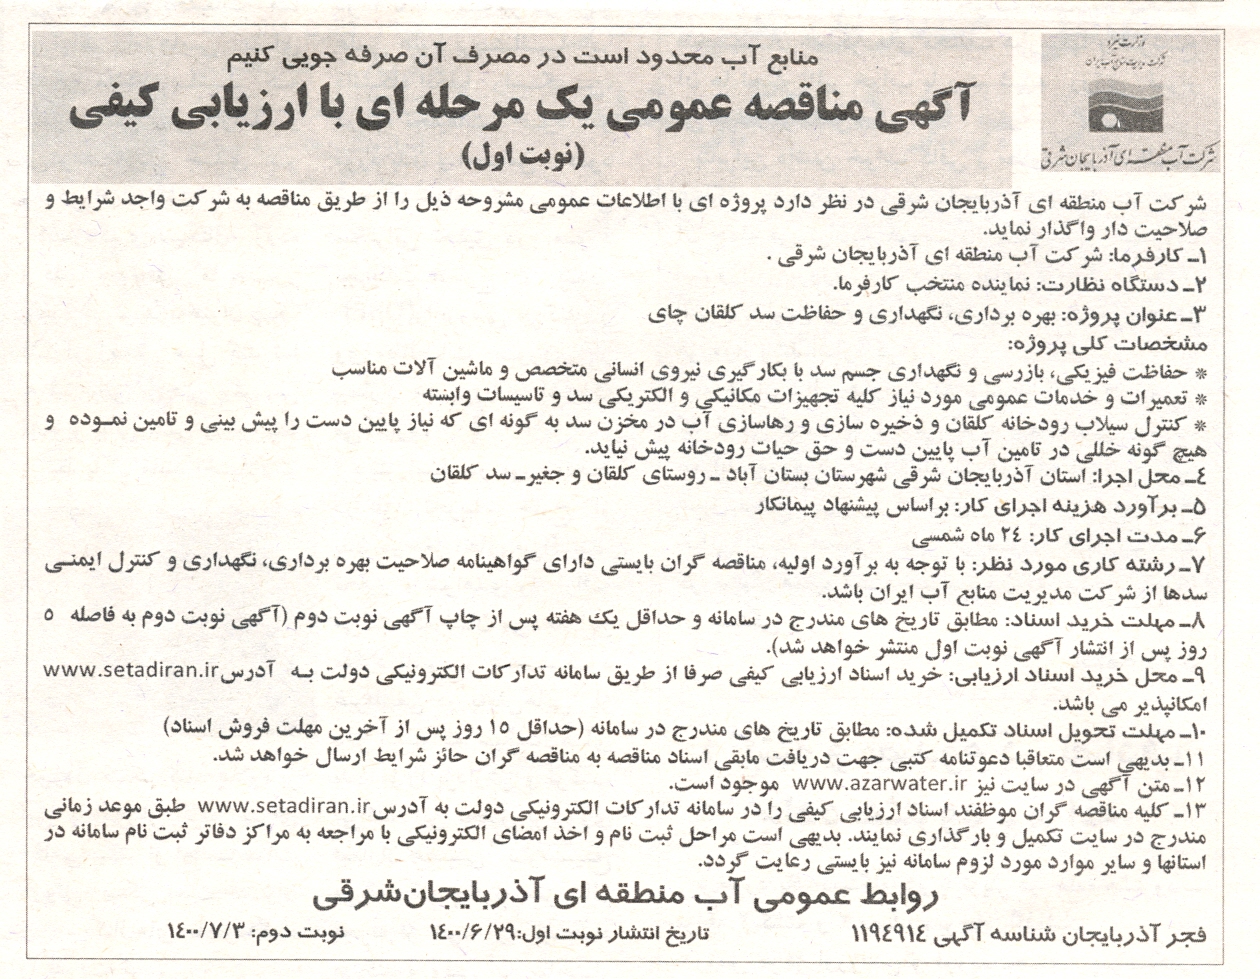 وزارت نیرو
شرکت مدیریت منابع آب ایران
شرکت آب منطقه ای آذربایجان شرقی
منابع آب محدود است در مصرف آن صرفه جویی کنیم
آگهی مناقصه عمومی یک مرحله ای با ارزیابی کیفی
(نوبت اول)
شرکت آب منطقه ای آذربایجان شرقی در نظر دارد پروژه ای با اطلاعات عمومی مشروحه ذیل را از طریق مناقصه به شرکت واجد شرایط و
صلاحیت دار واگذار نماید.
۱ـ کارفرما: شرکت آب منطقه ای آذربایجان شرقی .
۲ـ دستگاه نظارت: نماینده منتخب کارفرما.
۳ـ عنوان پروژه: بهره برداری، نگهداری و حفاظت سد کلقان چای
مشخصات کلی پروژه:
* حفاظت فیزیکی، بازرسی و نگهداری جسم سد با بکارگیری نیروی انسانی متخصص و ماشین آلات مناسب
* تعمیرات و خدمات عمومی مورد نیاز کلیه تجهیزات مکانیکی و الکتریکی سد و تاسیسات وابسته
* کنترل سیلاب رودخانه کلقان و ذخیره سازی و رهاسازی آب در مخزن سد به گونه ای که نیاز پایین دست را پیش بینی و تامین نموده و
هیچ گونه خللی در تامین آب پایین دست و حق حیات رودخانه پیش نیاید.
٤ـ محل اجرا: استان آذربایجان شرقی شهرستان بستان آباد ـ روستای کلقان و جغیر ـ سد کلقان
۵ـ برآورد هزینه اجرای کار: براساس پیشنهاد پیمانکار
۶ـ مدت اجرای کار: ۲٤ ماه شمسی
۷ـ رشته کاری مورد نظر: با توجه به برآورد اولیه، مناقصه گران بایستی دارای گواهینامه صلاحیت بهره برداری، نگهداری و کنترل ایمنی
سدها از شرکت مدیریت منابع آب ایران باشد.
۸ـ مهلت خرید اسناد: مطابق تاریخ های مندرج در سامانه و حداقل یک هفته پس از چاپ آگهی نوبت دوم (آگهی نوبت دوم به فاصله ۵
روز پس از انتشار آگهی نوبت اول منتشر خواهد شد).
۹ـ محل خرید اسناد ارزیابی: خرید اسناد ارزیابی کیفی صرفا از طریق سامانه تدارکات الکترونیکی دولت به آدرس www.setadiran.ir
امکانپذیر می باشد.
۱۰ـ مهلت تحویل اسناد تکمیل شده: مطابق تاریخ های مندرج در سامانه (حداقل ۱۵ روز پس از آخرین مهلت فروش اسناد)
۱۱ـ بدیهی است متعاقبا دعوتنامه کتبی جهت دریافت مابقی اسناد مناقصه به مناقصه گران حائز شرایط ارسال خواهد شد.
۱۲ـ متن آگهی در سایت نیز www.azarwater.ir موجود است.
۱۳ـ کلیه مناقصه گران موظفند اسناد ارزیابی کیفی را در سامانه تدارکات الکترونیکی دولت به آدرس www.setadiran.ir طبق موعد زمانی
مندرج در سایت تکمیل و بارگذاری نمایند. بدیهی است مراحل ثبت نام و اخذ امضای الکترونیکی با مراجعه به مراکز دفاتر ثبت نام سامانه در
استانها و سایر موارد مورد لزوم سامانه نیز بایستی رعایت گردد.
روابط عمومی آب منطقه ای آذربایجان‌شرقی
فجر آذربایجان شناسه آگهی ۱۱۹٤۹۱٤ تاریخ انتشار نوبت اول: ۱٤۰۰/۶/۲۹ نوبت دوم: ۱٤۰۰/۷/۳